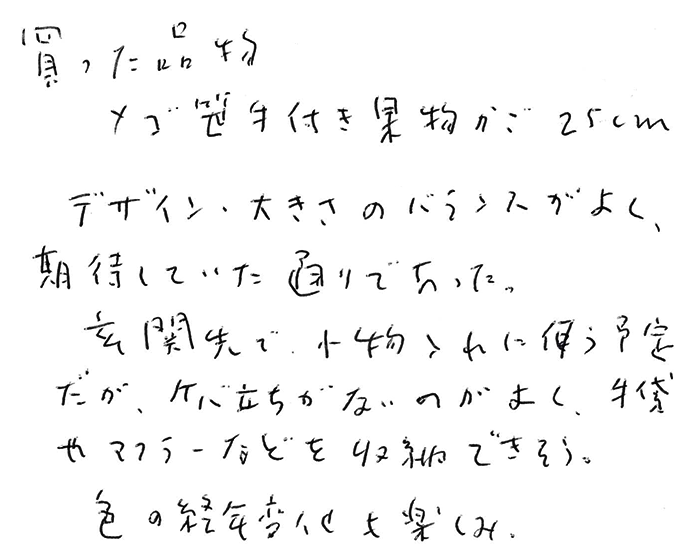 買った品物
メゴ笹手付き果物かご 25cm
デザイン・大きさのバランスがよく、
期待していた通りであった。
玄関先で、小物入れに使う予定
だが、ケバ立ちがないのがよく、手袋
やマフラーなどを収納できそう。
色の経年変化も楽しみ.